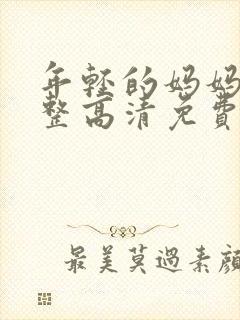 年轻的妈妈
整高清免費
最美莫過素顔